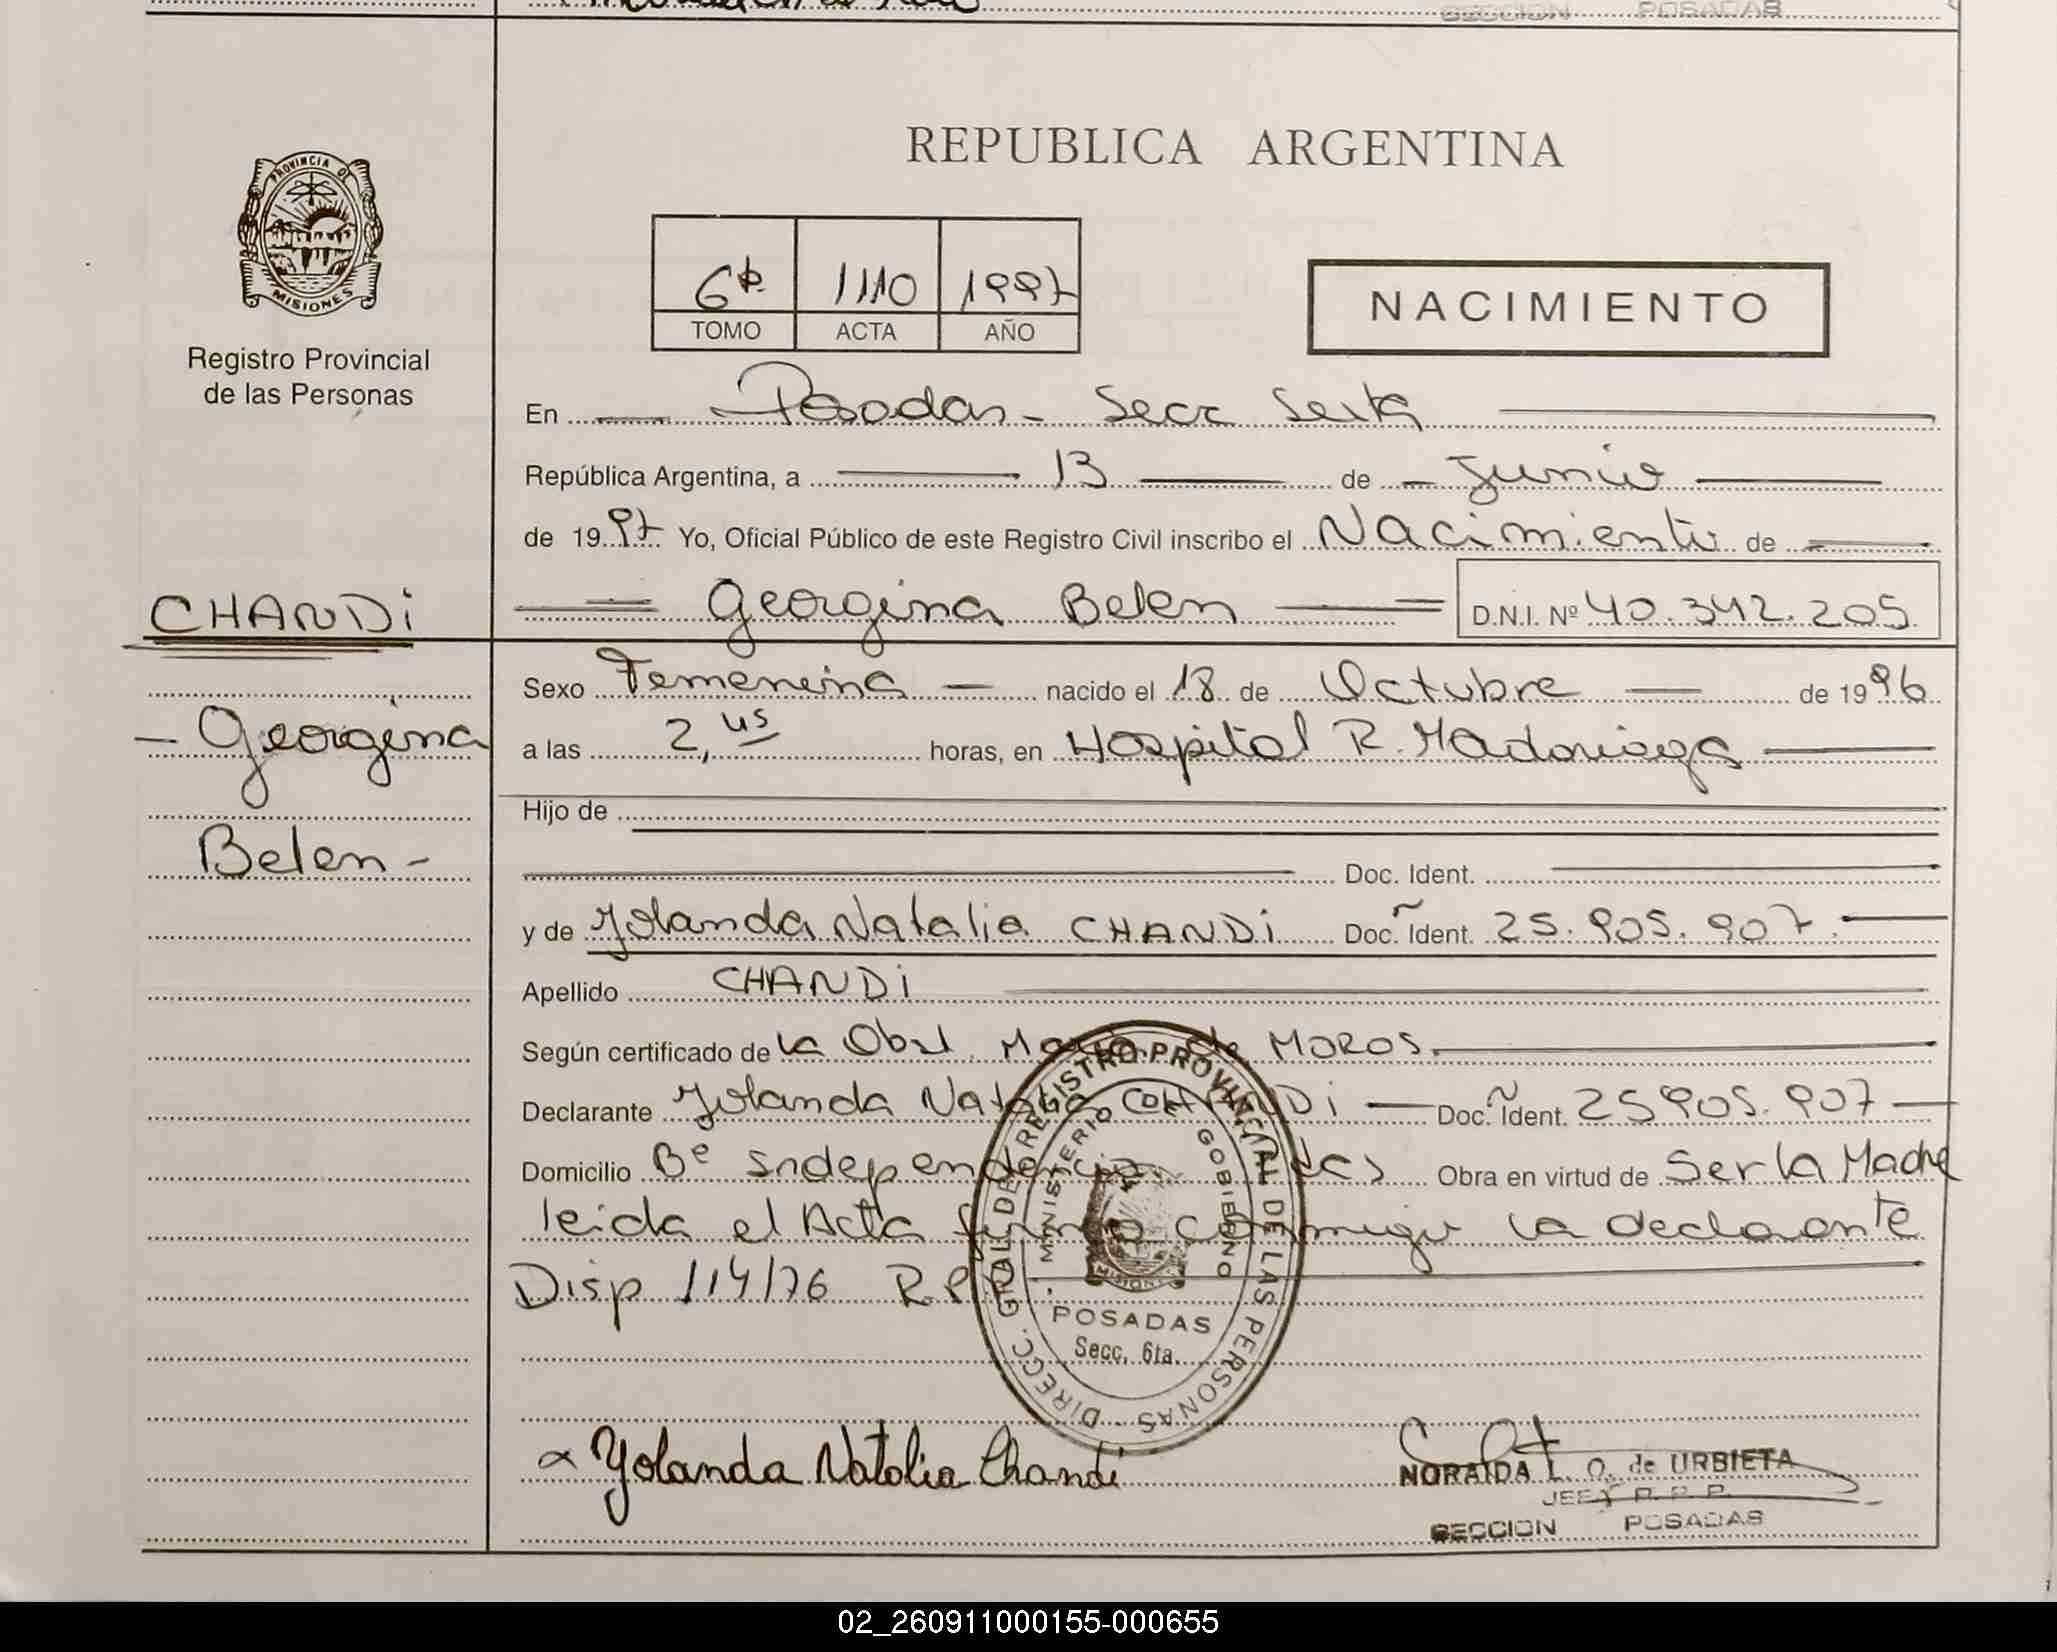 SECCION POSADAS
REPUBLICA ARGENTINA
PROVINCIA DE
MISIONES
Registro Provincial
de las Personas
6ta 1110 1997
TOMO ACTA AÑO
NACIMIENTO
En Posadas - Secc Sexta
República Argentina, a 13 de Junio
de 1997 Yo, Oficial Público de este Registro Civil inscribo el Nacimiento de
CHANDi
Georgina Belen D.N.I. Nº 40.342.205
Sexo Femenina nacido el 18 de Octubre de 1996
- Georgina
a las 2,45 horas, en Hospital R. Madariaga
Hijo de
Belen -
Doc. Ident.
y de Yolanda Natalia CHANDi Doc. Ident. 25.905.907.
Apellido CHANDi
Según certificado de la Obst. Maria de MOROS
Declarante Yolanda Natalia CHANDi Doc. Ident. 25905.907
Domicilio Bº independencia Obra en virtud de Ser la Madre
leida el Acta firma conmigo la declarante
Disp 114/76 R.P
DIRECC. GRAL. DE REGISTRO PROVINCIAL DE LAS PERSONAS
MINISTERIO GOBIERNO
MISIONES
POSADAS
Secc. 6ta.
Yolanda Natalia Chandi
NORAIDA L. O. de URBIETA
JEFE R. P. P.
SECCION POSADAS
02_260911000155-000655